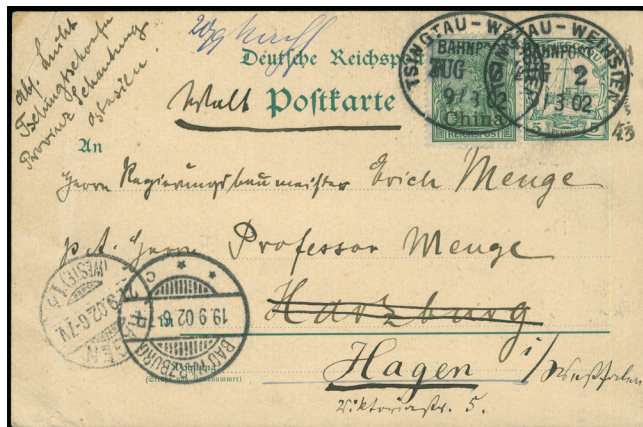 Abs. Luicht
Tschangschoufu
Provinz Schantung
Ostasien.
Deutsche Reichspost
Welt Postkarte
TSINGTAU - WEIHSIEN
BAHNPOST
ZUG 2
9/3 02
China
REICHSPOST
TSINGTAU - WEIHSIEN
BAHNPOST
ZUG 2
9/3 02
5 5
43
An
Herrn Regierungsbaumeister Erich Menge
p. A. Herrn Professor Menge
Harzburg
Hagen i/Westfalen
Viktoriastr. 5.
HAGEN (WESTF) 1
9.02.6-7N
BAD HARZBURG
19.9.02.6-7